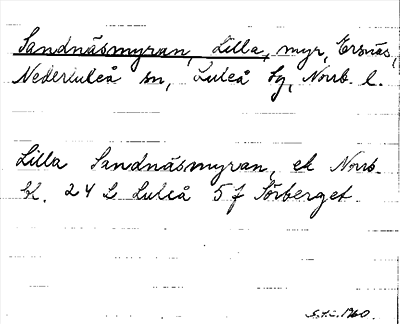 Sandnäsmyran, Lilla, myr, Ersnäs,
Nederluleå sn, Luleå tg, Norrb. l.
Lilla Sandnäsmyran, ek Norrb.
bl. 24 L Luleå 5 f Sörberget.
1960.